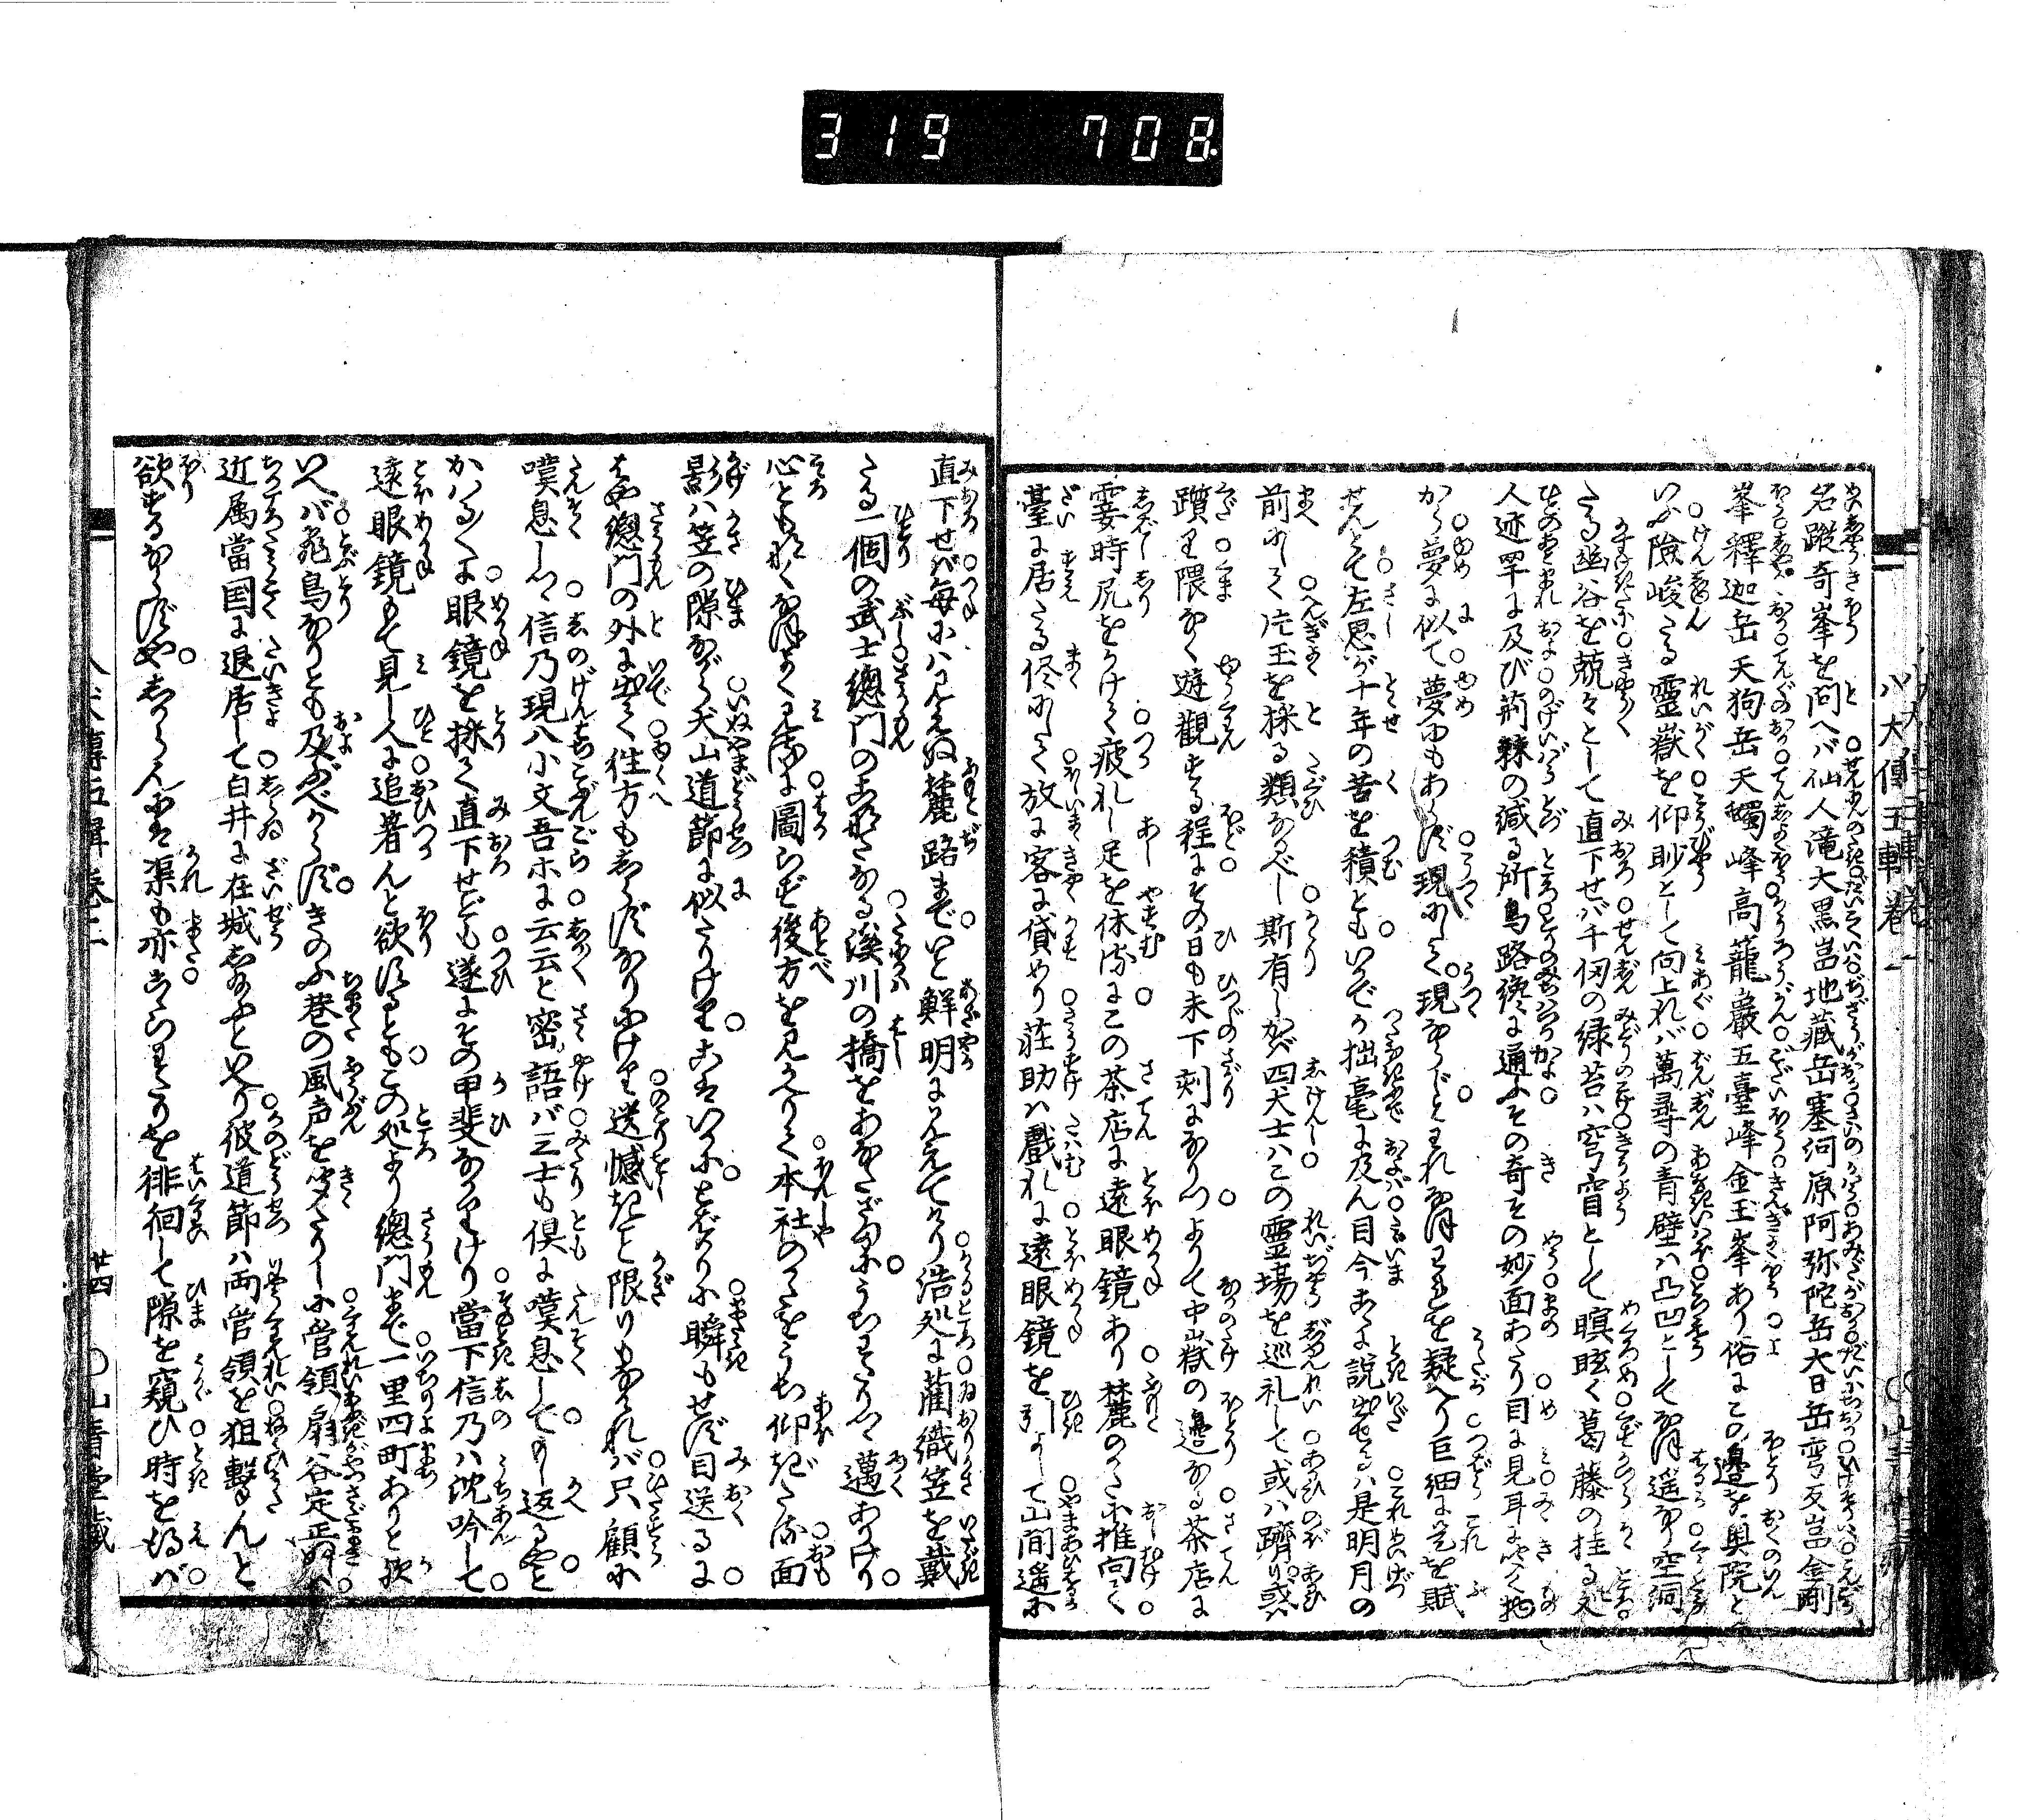 319 708
八犬傳五輯卷二
名蹤奇峯を問へバ仙人滝大黒嵓地藏岳塞河原阿弥陀岳大日岳弯反嵓金剛
峯釋迦岳天狗岳天蠋峰高籠巖五臺峰金玉峯あり俗にこの邉を奥院と
いふ險峻たる靈嶽を仰眇として向上れバ萬尋の青壁ハ凸凹として遥なり空洞
たる幽谷を兢々として直下せバ千仭の緑苔ハ穹窅として瞑眩く葛藤の挂る
人迹罕に及び荊棘の緘る所鳥路纔に通ふその奇その妙面あたり目に見耳に聞く物
から夢に似て夢にもあらず現にして現ならじとわれながらわれを疑へり巨細にこれを賦
せんとて左思が十年の苦を積ともいかでか拙毫に及ん目今こゝに説出せるハ是明月の
前にして片玉を採る類なるべし斯有しかバ四犬士ハこの霊場を巡礼して或ハ躋り或ハ
躓り隈なく遊觀する程にその日も未下刻になりつよりて中嶽の邉なる茶店に
霎時尻をうけて疲れし足を休るにこの茶店に遠眼鏡あり麓のかたに推向て
臺に居たる侭にして放に客に貸めり荘助ハ戲れに遠眼鏡を引よして山間遥に
直下せバ毎にハ見えぬ麓路までいと鮮明に見えてけり浩処に藺織笠を戴
たる一個の武士總門のこなたなる溪川の橋をあなたざまにうちわたりつゝ邁ありけり
心ともなく熟々見るに圖らず後方を見かへりて本社のかたをうち仰ぎたる面
影ハ笠の隙ながら犬山道節に似たりけりこはいかにとばかりに瞬もせず目送るに
はや總門の外に出て往方もしらずなりにけり送憾きこと限りもなけれバ只顧に
嘆息しつゝ信乃現八小文吾ホに云云と密語バ三士も倶に嘆息してうち返る
かはる〴〵に眼鏡を採て直下せども遂にその甲斐なかりけり當下信乃ハ沈吟して
遠眼鏡もて見し人に追着んと欲するともこの処より總門まで一里四町ありと歟
いへバ飛鳥なりとも及ぶべからずきのふ巷の風声を聞たりしに管領扇谷定正
近属當国に退居して白井に在城し給ふといへり彼道節ハ両管領を狙撃まんと
欲するならずやしからんには渠も亦こゝらわたりを徘徊して隙を窺ひ時を得バ
八犬傳五輯卷二 廿四 山青堂藏